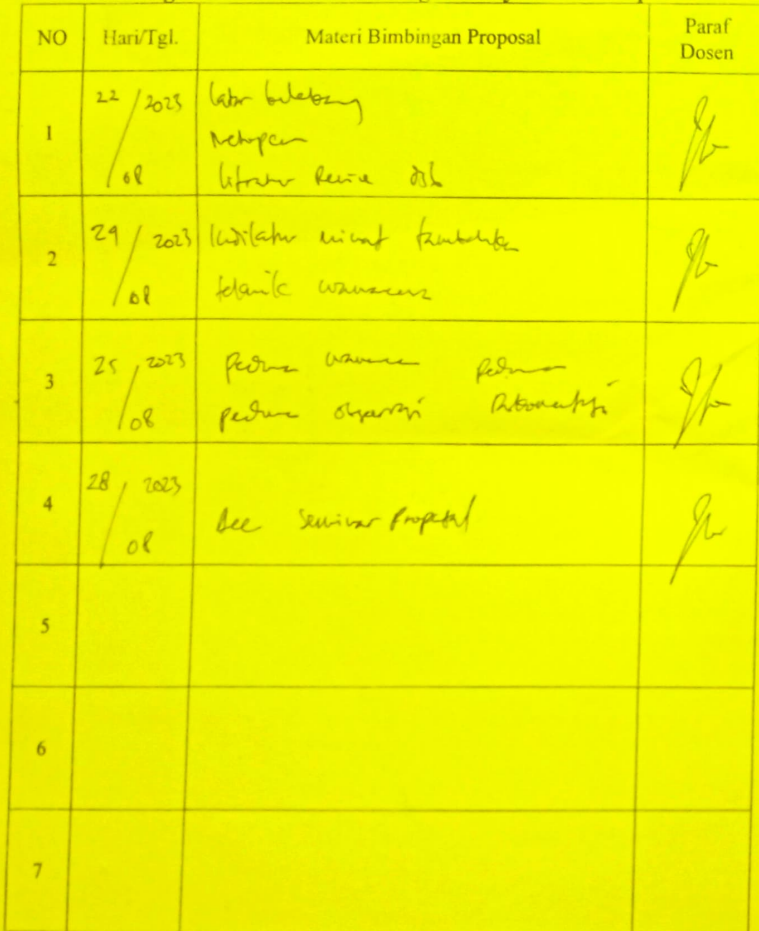 NO Hari/Tgl. Materi Bimbingan Proposal Paraf Dosen
1 22/08 2023 latar belakang
literatur Review
2 29/08 2023 Indikator minat
teknik wawancara
3 25/08 2023 pedoman wawancara pedoman
pedoman observasi Dokumentasi
4 28/08 2023 Acc Seminar Proposal
5
6
7